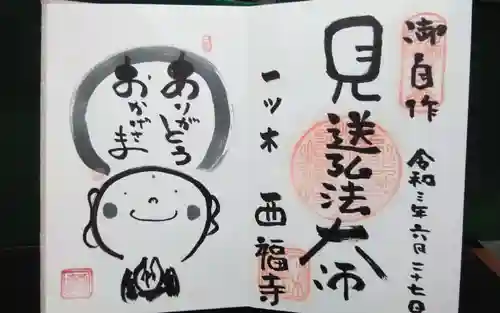 御自作
見送弘法大師
令和三年六月二十七日
一ツ木
西福寺
ありがとう
おかげさま